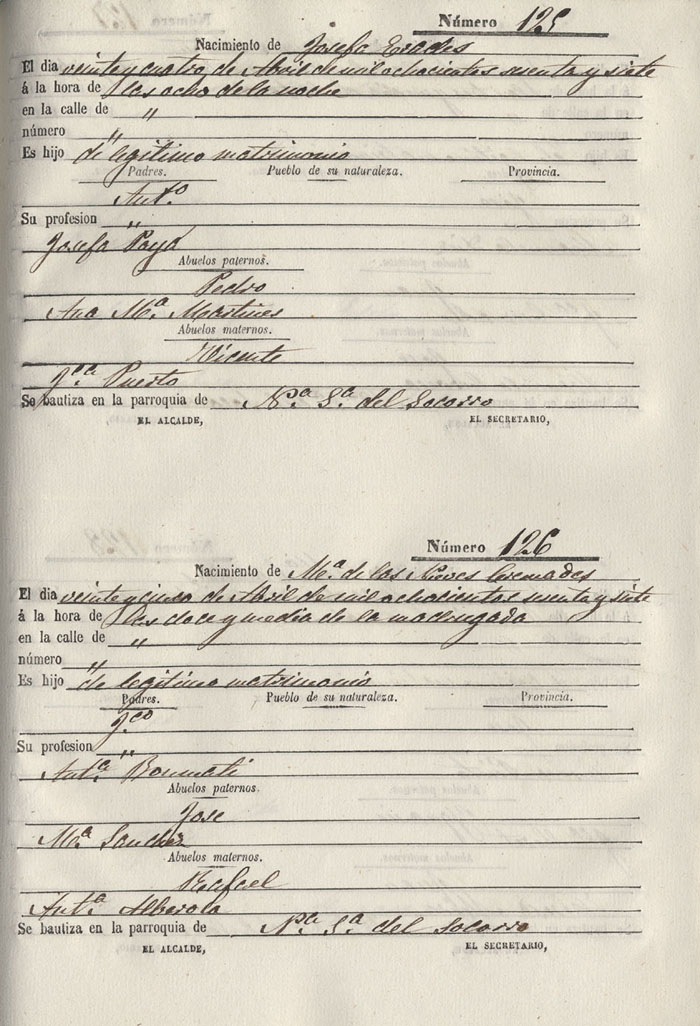 Número 125
Nacimiento de Josefa Erades
El dia veinte y cuatro de Abril de mil ochocientos sesenta y siete
á la hora de las ocho de la noche
en la calle de „
número „
Es hijo de legitimo matrimonio
Padres. Pueblo de su naturaleza. Provincia.
Ant.º
Su profesion „
Josefa Payá
Abuelos paternos.
Pedro
Ana M.ª Martines
Abuelos maternos.
Vicente
F.ca Puerto
Se bautiza en la parroquia de N.ª S.ª del Socorro
EL ALCALDE, EL SECRETARIO,
Número 126
Nacimiento de M.ª de las Nieves Cremades
El dia veinte y cinco de Abril de mil ochocientos sesenta y siete
á la hora de las doce y media de la madrugada
en la calle de „
número „
Es hijo de legitimo matrimonio
Padres. Pueblo de su naturaleza. Provincia.
F.co
Su profesion „
Ant.ª Bonmati
Abuelos paternos.
Jose
M.ª Sanchez
Abuelos maternos.
Rafael
Ant.ª Alberola
Se bautiza en la parroquia de N.ª S.ª del Socorro
EL ALCALDE, EL SECRETARIO,